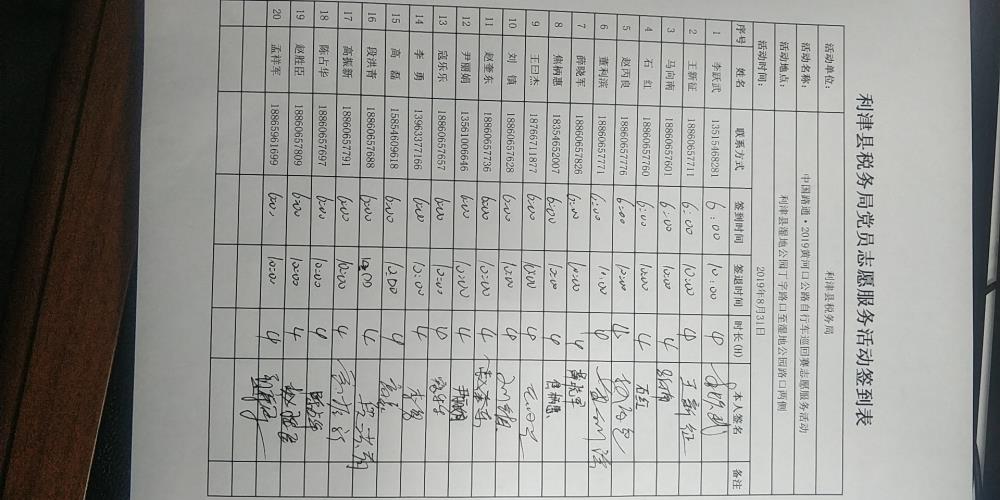 利津县税务局党员志愿服务活动签到表
活动单位： 利津县税务局
活动名称： 中国路通·2019黄河口公路自行车巡回赛志愿服务活动
活动地点： 利津县湿地公园丁字路口至湿地公园路口两侧
活动时间： 2019年8月31日
序号 姓名 联系方式 签到时间 签退时间 时长(H) 本人签名 备注
1 李跃武 13515468281 6:00 10:00 4 李跃武
2 王新征 18860657711 6:00 10:00 4 王新征
3 马向南 18860657601 6:00 10:00 4 马向南
4 石红 18860657760 6:00 10:00 4 石红
5 赵丙良 18860657776 6:00 10:00 4 赵丙良
6 董利滨 18860657771 6:00 10:00 4 董利滨
7 薛晓军 18860657826 6:00 10:00 4 薛晓军
8 焦柄惠 18354652007 6:00 10:00 4 焦柄惠
9 王曰杰 18766711877 6:00 10:00 4 王曰杰
10 刘镇 18860657628 6:00 10:00 4 刘镇
11 赵奎东 18860657736 6:00 10:00 4 赵奎东
12 尹丽娟 13561006646 6:00 10:00 4 尹丽娟
13 寇乐乐 18860657657 6:00 10:00 4 寇乐乐
14 李勇 13963377166 6:00 10:00 4 李勇
15 高磊 15854609618 6:00 10:00 4 高磊
16 段洪青 18860657688 6:00 10:00 4 段洪青
17 高振新 18860657791 6:00 10:00 4 高振新
18 陈占华 18860657697 6:00 10:00 4
19 赵胜臣 18860657809 6:00 10:00 4 赵胜臣
20 孟祥军 18865961699 6:00 10:00 4 孟祥军